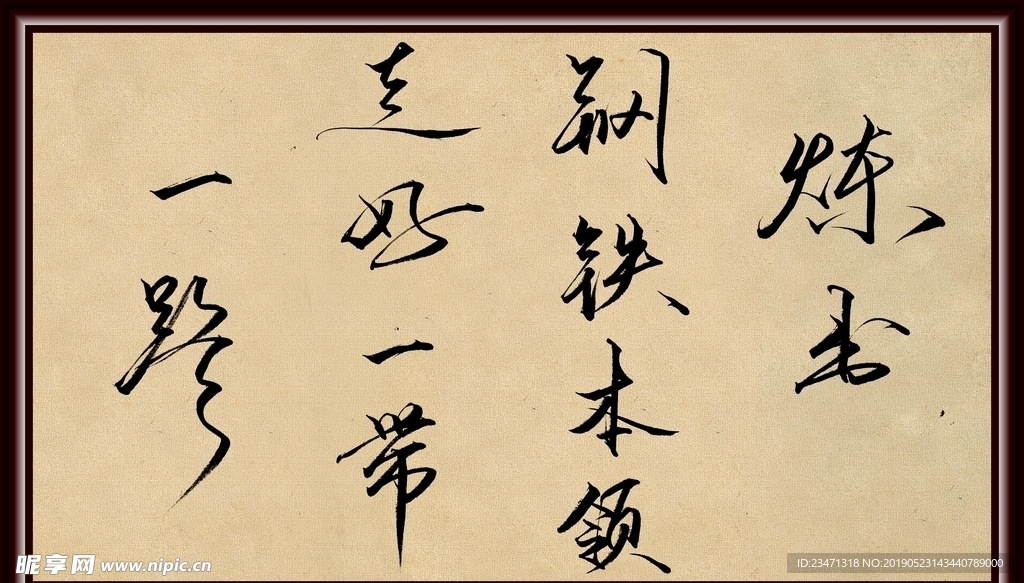 炼出
钢铁本领
走好一带
一路
昵享网 www.nipic.cn
ID:23471318 NO:20190523143440789000